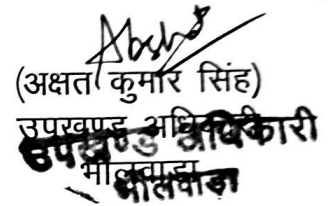 (अक्षत कुमार सिंह)
उपखण्ड अधिकारी
उपखण्ड अधिकारी
भीलवाड़ा
भीलवाड़ा